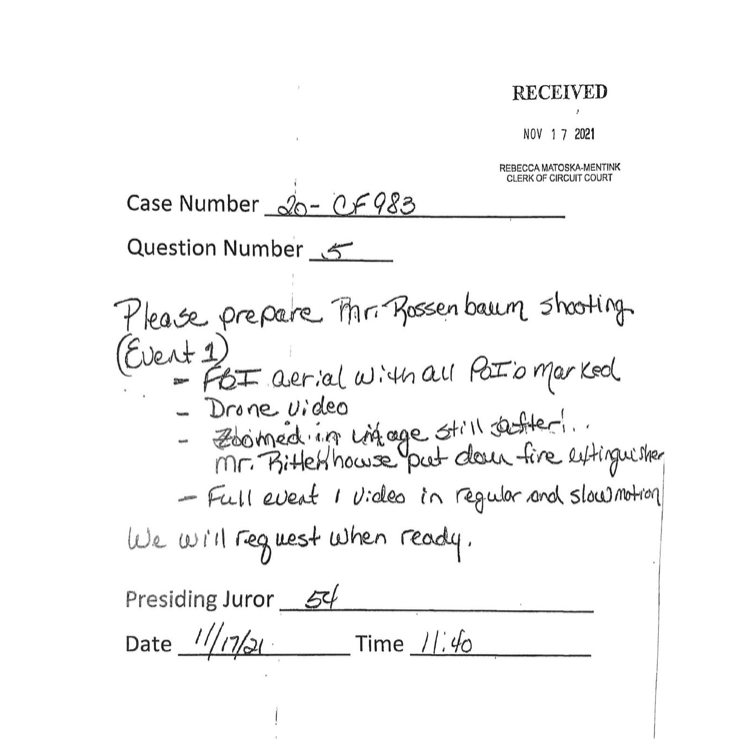 RECEIVED
NOV 17 2021
REBECCA MATOSKA-MENTINK
CLERK OF CIRCUIT COURT
Case Number 20-CF983
Question Number 5
Please prepare Mr. Rossenbaum shooting
(Event 1)
- FBI aerial with all PoI's marked
- Drone video
- Zoomed in image still after
Mr. Rittenhouse put down fire extinguisher
- Full event 1 video in regular and slow motion
We will request when ready.
Presiding Juror 54
Date 11/17/21 Time 11:40